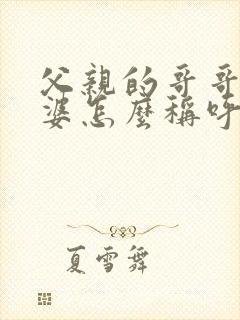 父親的哥哥
婆怎麼稱呼
夏雪舞